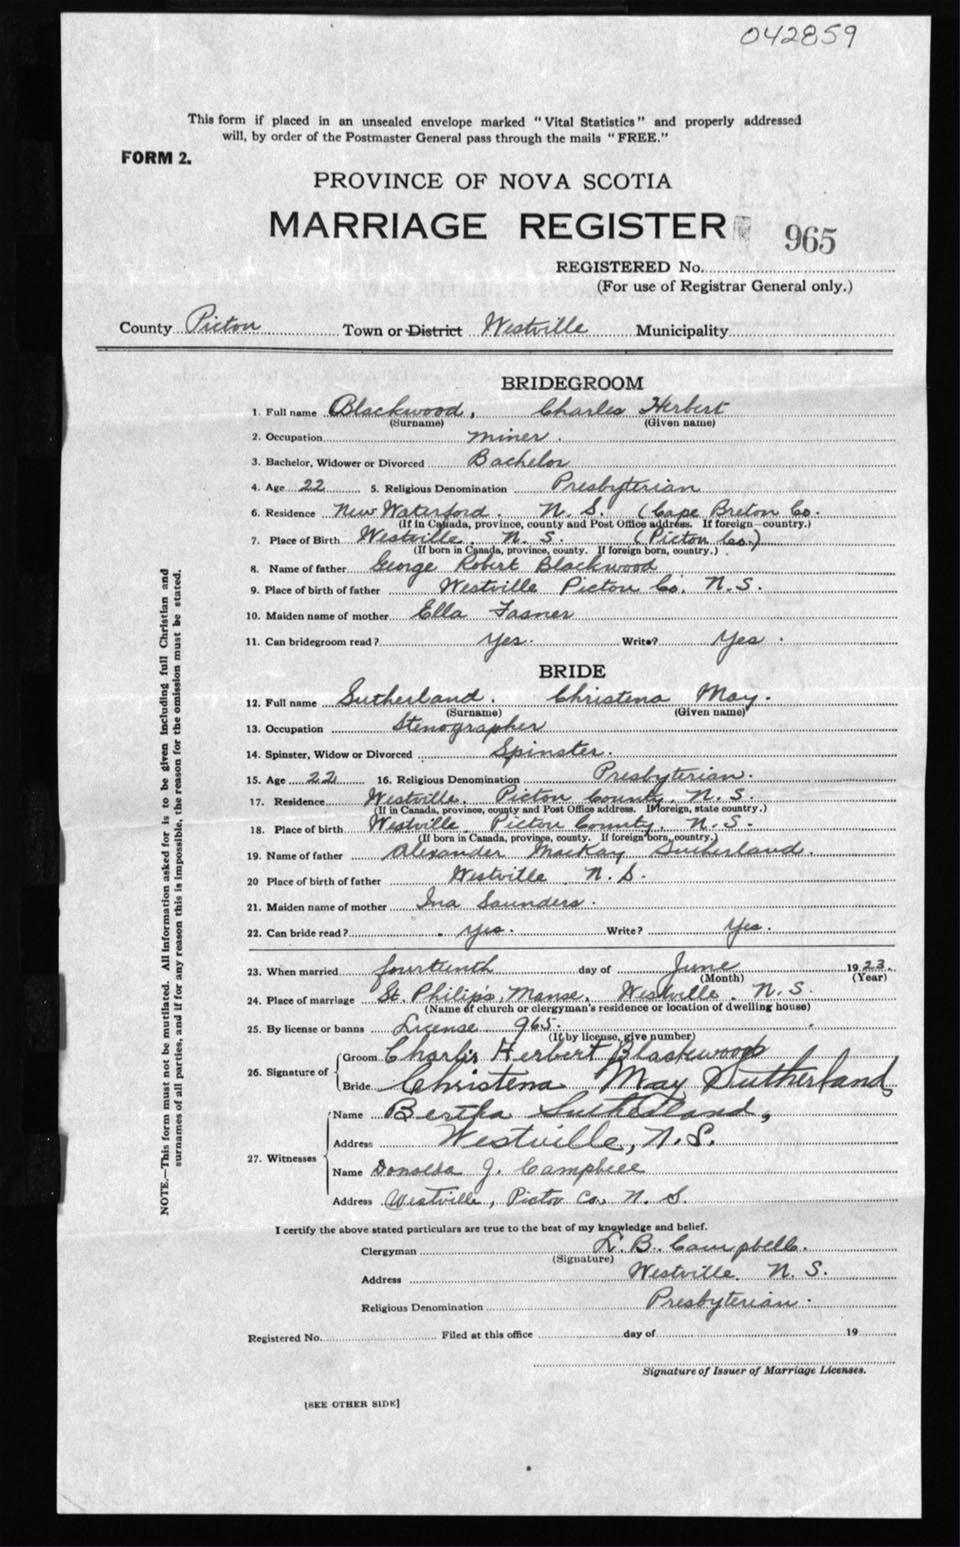 042859
This form if placed in an unsealed envelope marked "Vital Statistics" and properly addressed
will, by order of the Postmaster General pass through the mails "FREE."
FORM 2.
PROVINCE OF NOVA SCOTIA
MARRIAGE REGISTER
965
REGISTERED No.
(For use of Registrar General only.)
County Pictou Town or District Westville Municipality
BRIDEGROOM
1. Full name Blackwood, Charles Herbert
(Surname) (Given name)
2. Occupation miner.
3. Bachelor, Widower or Divorced Bachelor
4. Age 22 5. Religious Denomination Presbyterian
6. Residence New Waterford. N. S. (Cape Breton Co.
(If in Canada, province, county and Post Office address. If foreign—country.)
7. Place of Birth Westville. N. S. (Pictou Co.)
(If born in Canada, province, county. If foreign born, country.)
8. Name of father George Robert Blackwood
9. Place of birth of father Westville Pictou Co. N. S.
10. Maiden name of mother Ella
11. Can bridegroom read? Yes. Write? Yes.
BRIDE
12. Full name Sutherland. Christena May.
(Surname) (Given name)
13. Occupation Stenographer
14. Spinster, Widow or Divorced Spinster.
15. Age 22 16. Religious Denomination Presbyterian.
17. Residence Westville. Pictou County. N. S.
(If in Canada, province, county and Post Office address. If foreign, state country.)
18. Place of birth Westville. Pictou County. N. S.
(If born in Canada, province, county. If foreign born, country.)
19. Name of father Alexander MacKay Sutherland.
20 Place of birth of father Westville. N. S.
21. Maiden name of mother Ina Saunders.
22. Can bride read? Yes. Write? Yes.
23. When married fourteenth day of June 1923.
(Month) (Year)
24. Place of marriage St. Philip's, Manse, Westville. N. S.
(Name of church or clergyman's residence or location of dwelling house)
25. By license or banns License 965.
(If by license, give number)
26. Signature of Groom Charles Herbert Blackwood
Bride Christena May Sutherland
27. Witnesses Name Bertha Sutherland,
Address Westville, N.S.
Name Donalda J. Campbell
Address Westville, Pictou Co. N. S.
I certify the above stated particulars are true to the best of my knowledge and belief.
Clergyman L. B. Campbell.
(Signature)
Address Westville. N. S.
Religious Denomination Presbyterian.
Registered No. Filed at this office day of 19
Signature of Issuer of Marriage Licenses.
[SEE OTHER SIDE]
NOTE.—This form must not be mutilated. All information asked for is to be given including full Christian and
surnames of all parties, and if for any reason this is impossible, the reason for the omission must be stated.